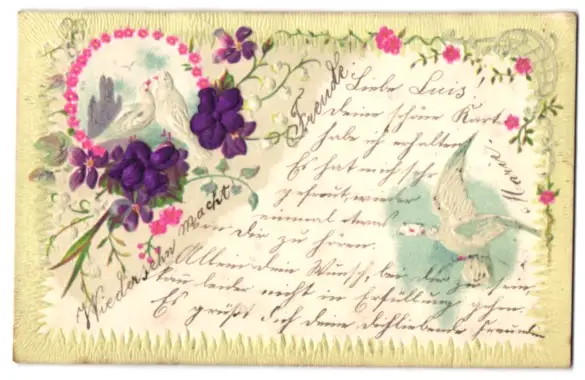 Wiedersehn macht Freude
Liebe Luis!
Deine schöne Kart
habe ich erhalten
Es hat mich sehr
gefreut, wieder
einmal etwas
von Dir zu hören.
Allem dein Wunsch, bei dir zu sein,
kau leider nicht in Erfüllung gehen.
Es grüßt Dich deine Dichliebende Freundin
Marie.